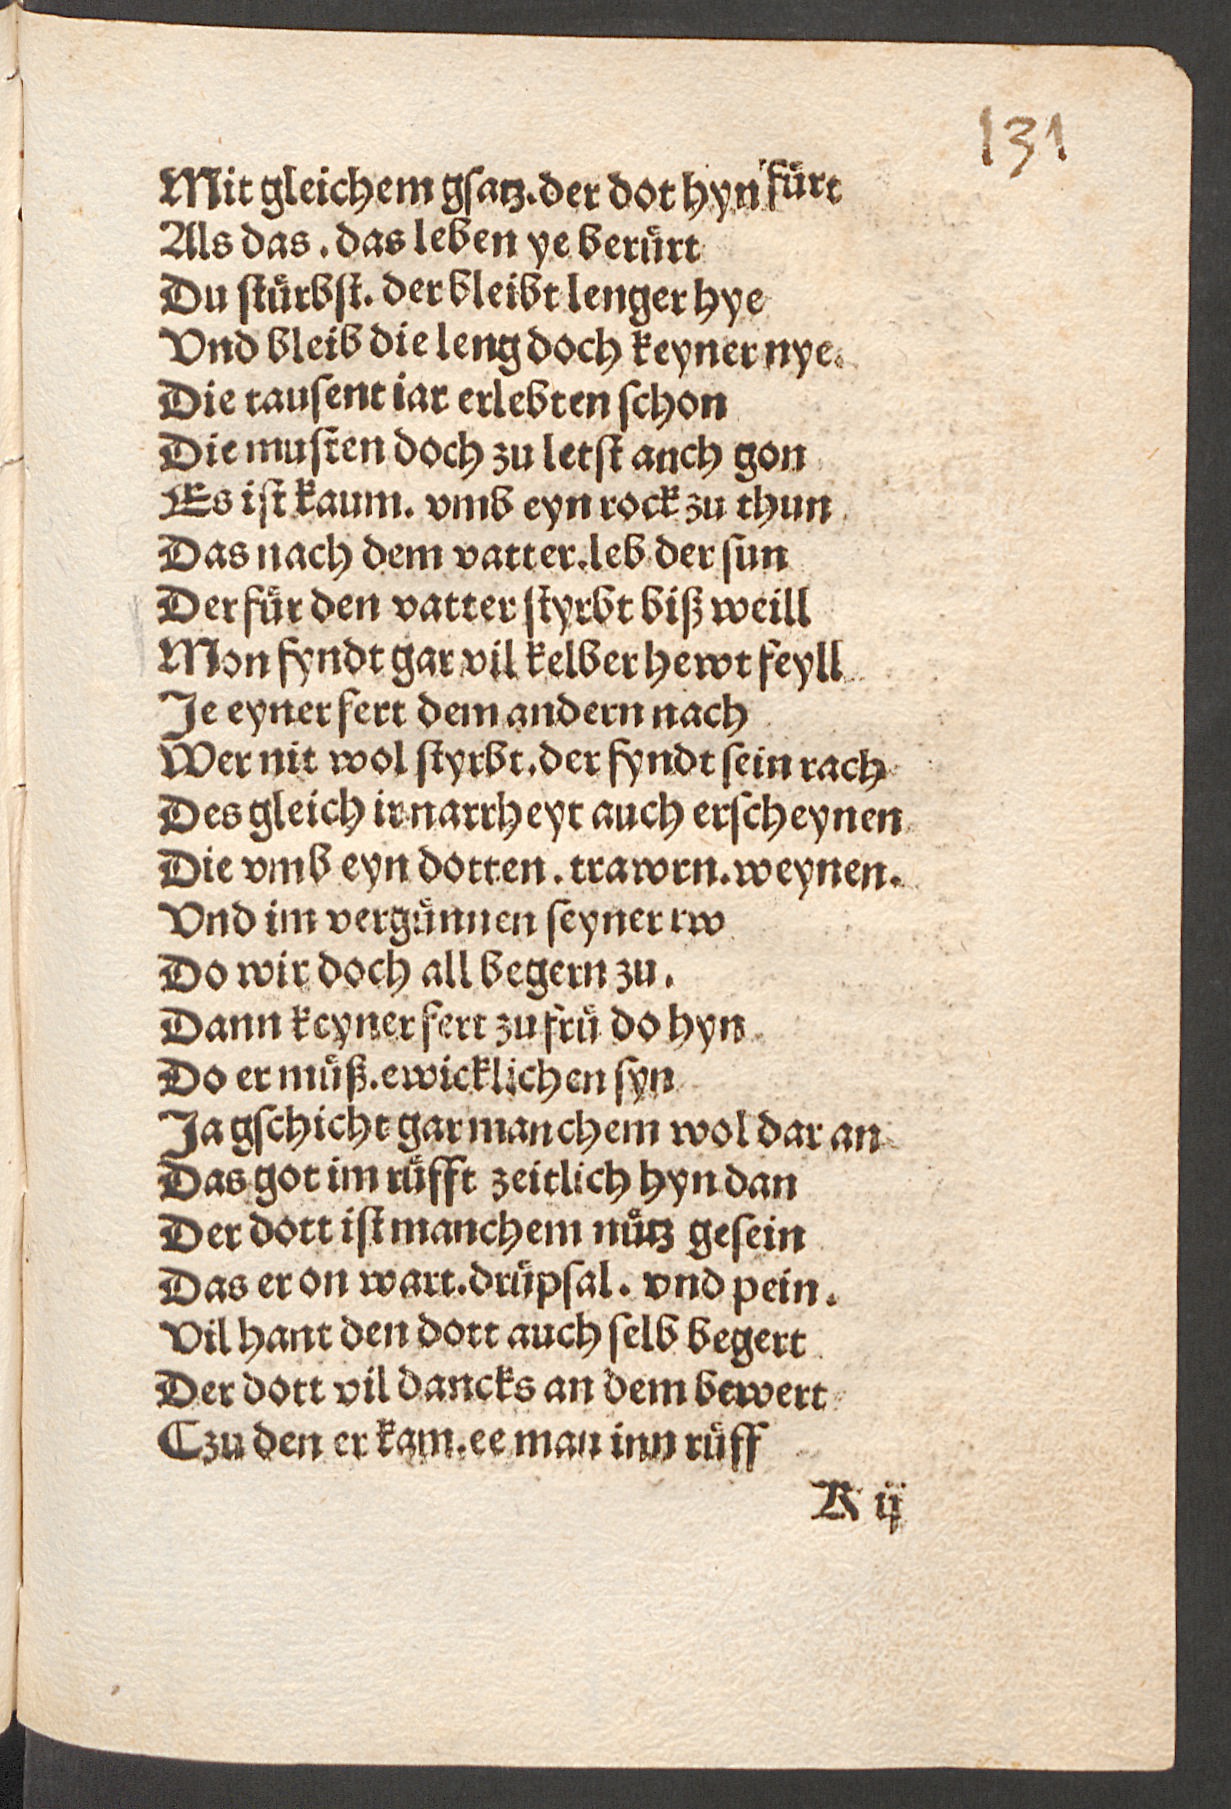 131
Mit gleichem gsatz. der dot hyn fuͤrt
Als das. das leben ye beruͤrt
Du stuͤrbst. der bleibt lenger hye
Vnd bleib die leng doch keyner nye.
Die tausent iar erlebten schon
Die musten doch zu letst anch gon
Es ist kaum. vmb eyn rock zu thun
Das nach dem vatter. leb der sun
Der fuͤr den vatter styrbt biß weill
Mon fyndt gar vil kelber hewt feyll
Je eyner fert dem andern nach
Wer nit wol styrbt. der fyndt sein rach
Des gleich ir narrheyt auch erscheynen
Die vmb eyn dotten. trawrn. weynen.
Vnd im verguͤnnen seyner rw
Do wir doch all begern zu.
Dann keyner fert zu fruͤ do hyn
Do er muͤß. ewicklichen syn
Ja gschicht gar manchem wol dar an
Das got im ruͤfft zeitlich hyn dan
Der dott ist manchem nuͤtz gesein
Das er on wart. druͤpsal. vnd pein.
Vil hant den dott auch selb begert
Der dott vil dancks an dem bewert
Czu den er kam. ee man inn ruͤff
R ij